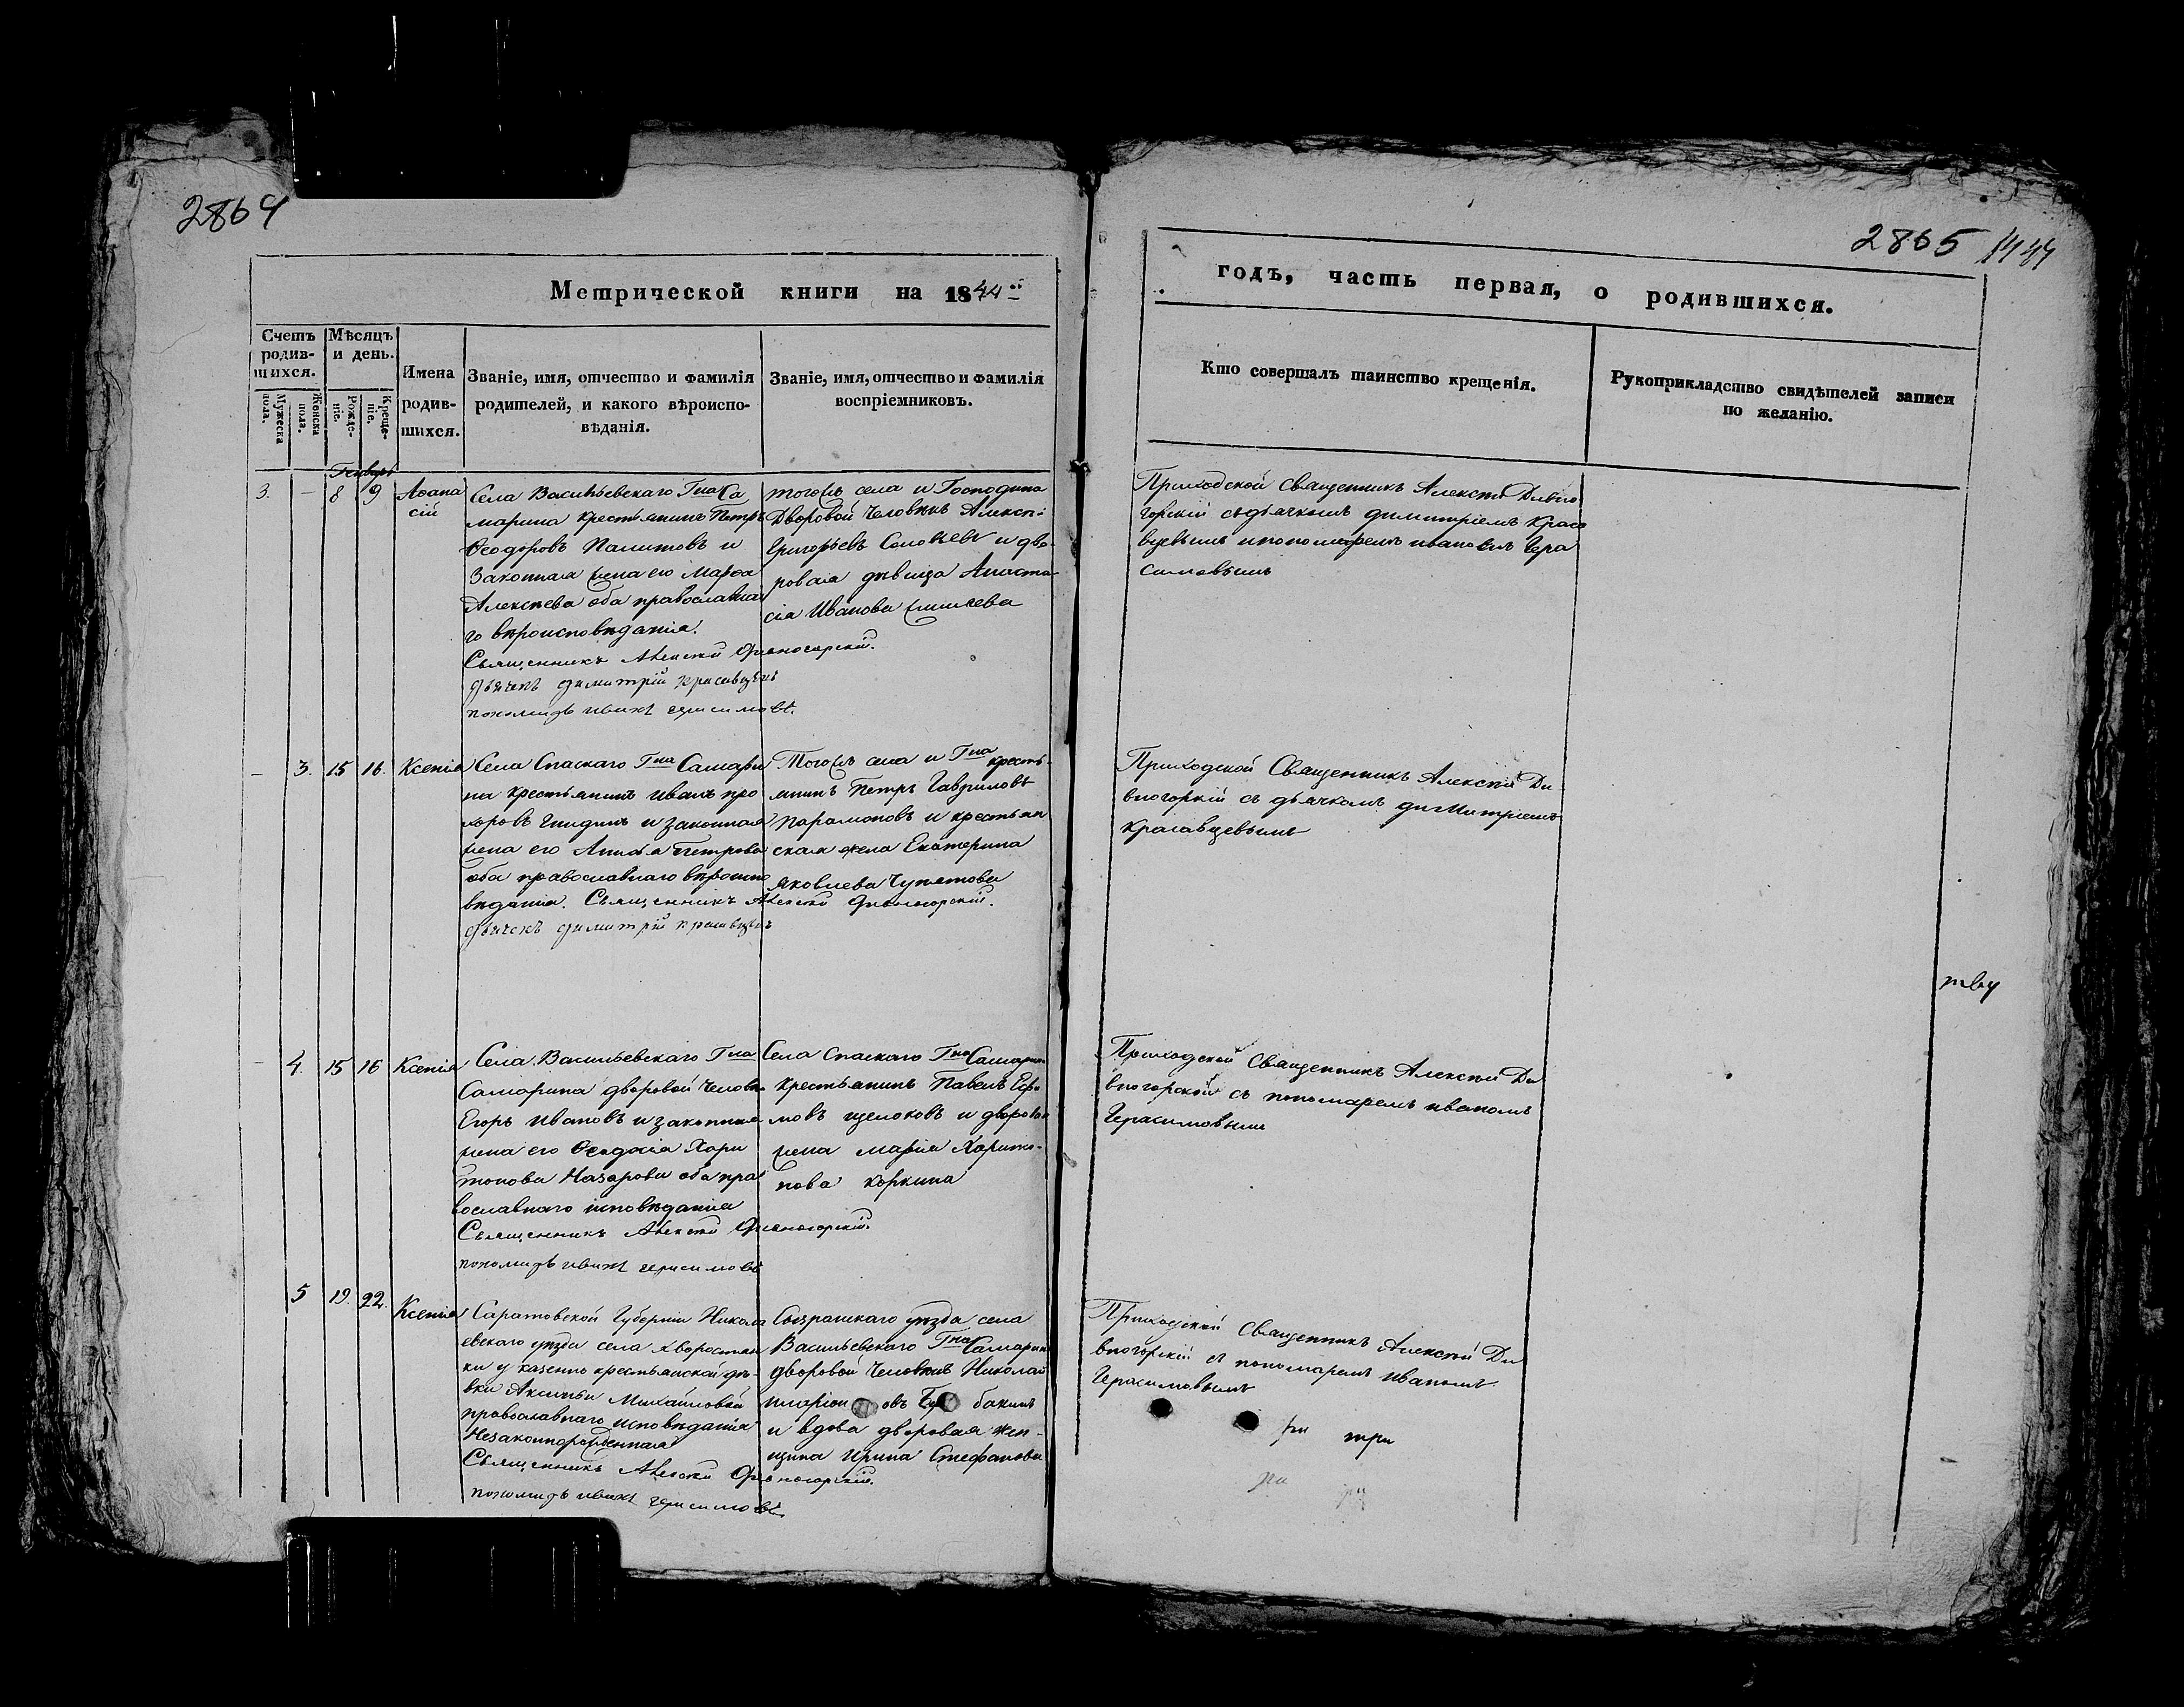 2864
2865
Метрической книги на 1844
годъ, часть первая, о родившихся.
Счетъ родив-шихся.
Мужеска пола.
Женска пола.
Мѣсяцъ и день.
Рожде-ніе.
Креще-ніе.
Имена родив-шихся.
Званіе, имя, отчество и фамилія
родителей, и какого вѣроиспо-
вѣданія.
Званіе, имя, отчество и фамилія
воспріемниковъ.
Кто совершалъ таинство крещенія.
Рукоприкладство свидѣтелей записи
по желанію.
Генварь
3. — 8 9 Аѳана
сій
Села Васильевскаго Гна Са
марина крестьянинъ Петръ
Ѳеодоровъ и
Законная жена его Марѳа
Алексѣева оба православна
го вѣроисповѣданія.
Священникъ Алексѣй Дивногорскій.
дьячекъ димитрій красавцевъ
пономарь иванъ герасимовъ.
тогожъ села и Господина
Дворовой Человѣкъ Алексѣй
Григорьевъ Соловьевъ и дво
ровая дѣвица Анаста
сія Иванова
Приходской Священникъ Алексѣй Дивно
горскій съ дьячкомъ димитріемъ Краса
вцевымъ и пономаремъ иваномъ Гера
симовымъ
— 3. 15 16. Ксенія
Села Спаскаго Гна Самари
на крестьянинъ иванъ про
хоровъ и законная
жена его Петрова
оба православнаго вѣроиспо
вѣданія. Священникъ Алексѣй Дивногорскій.
дьячекъ димитрій красавцевъ
Тогожъ села и Гна кресть-
янинъ Петръ Гавриловъ
Парамоновъ и крестьян
ская жена Екатерина
Яковлева
Приходской Священникъ Алексѣй Ди
вногоркій съ дьячкомъ димитріемъ
Красавцевымъ
тву
— 4. 15 16 Ксенія
Села Васильевскаго Гна
Самарина дворовой Человѣкъ
Егоръ Ивановъ и законная
жена его Ѳеодосія Хари
тонова Назарова оба пра
вославнаго исповѣданія
Священникъ Алексѣй Дивногорскій.
пономарь иванъ герасимовъ
Села Спаскаго Гна Самарина
крестьянинъ Павелъ Ефи
мовъ щелоковъ и дворовая
жена марія Харито-
нова Коркина
Приходской Священникъ Алексѣй Ди
вногорской съ пономаремъ иваномъ
Герасимовымъ
5 19. 22. Ксенія
Саратовской Губерніи Никола
евскаго уѣзда села Хворостян
ки у казенно крестьянской дѣ-
вки Аксиньи Михайловой
православнаго исповѣданія
Незаконнорожденная
Священникъ Алексѣй Дивногорскій.
пономарь иванъ герасимовъ
Сызранскаго уѣзда села
Васильевскаго Гна Самарина
дворовой Человѣкъ Николай
иларіоновъ
и вдова дворовая жен-
щина Ирина Стефанова
Приходской Священникъ Алексѣй Ди
вногорскій съ пономаремъ Иваномъ
Герасимовымъ
ри три